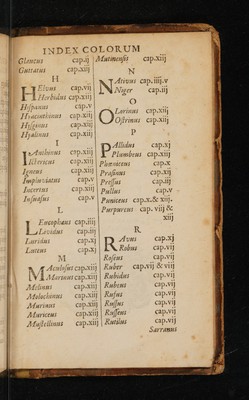 INDEX COLORUM
Glaucus cap.ij
Guttatus cap.xiij
H
Helvus cap.vij
Herbidus cap.xij
Hispanus cap.v
Hyacinthinus cap.xij
Hysginus cap.xij
Hyalinus cap.xij
I
Ianthinus cap.xiij
Ictericus cap.xiij
Igneus cap.xiij
Impluviatus cap.v
Incertus cap.xiij
Insuasus cap.v
L
Leucophaus cap.iiij
Lividus cap.iij
Luridus cap.xj
Luteus cap.xj
M
Maculosus cap.xiij
Marinus cap.xij
Melinus cap.xiij
Molochinus cap.xiij
Murinus cap.xiij
Muriceus cap.xiij
Mustellinus cap.xiij
Mutinensis cap.xiij
N
Nativus cap.iiij.v
Niger cap.iij
O
Olorinus cap.xiij
Ostrinus cap.xiij
P
Pallidus cap.xj
Plumbeus cap.xiij
Phœniceus cap.x
Prasinus cap.xij
Pressus cap.iij
Pullus cap.v
Puniceus cap.x.& xij.
Purpureus cap. viij &
xiij
R
Ravus cap.xj
Robus cap.vij
Roseus cap.vij
Ruber cap.vij & viij
Rubidus cap.vij
Rubens cap.vij
Rufus cap.vij
Russus cap.vij
Russeus cap.vij
Rutilus cap.vij
Sarranus